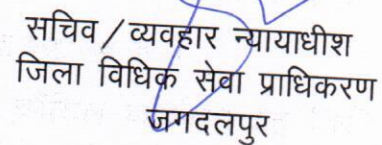 सचिव / व्यवहार न्यायाधीश
जिला विधिक सेवा प्राधिकरण
जगदलपुर